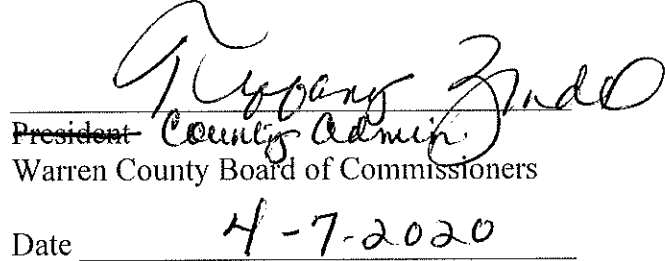 Tiffany Zindel
President County Admin.
Warren County Board of Commissioners
Date 4-7-2020